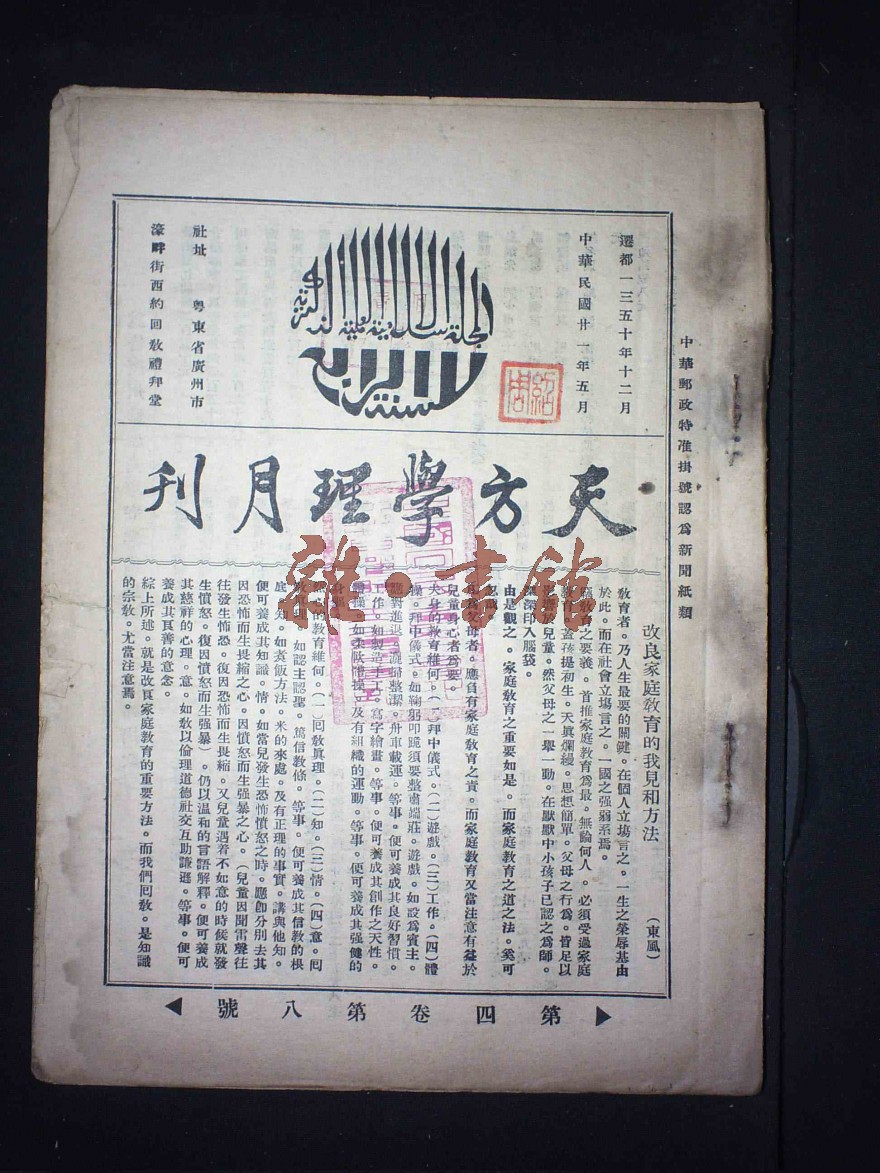 中華郵政特准掛號認爲新聞紙類
遷都一三五十年十二月
中華民國廿一年五月
社址　粵東省廣州市
濠畔街西約回敎禮拜堂
天方學理月刊
改良家庭敎育的我見和方法　（東風）
敎育者。乃人生最要的關鍵。在個人立塲言之。一生之榮辱基由
於此。而在社會立塲言之。一國之强弱系焉。
敎育之要義。首推家庭敎育爲最。無論何人。必須受過家庭
敎育。蓋孩提初生。天眞爛縵。思想簡單。父母之行爲。皆足以
兒童。然父母之一舉一動。在默默中小孩子已認之爲師。
深印入腦袋。
由是觀之。家庭敎育之重要如是。而家庭敎育之道之法。奚可
父母者。應負有家庭敎育之責。而家庭敎育又當注意有益於
兒童身心者爲要。
夫身的敎育維何。（一）拜中儀式。（二）遊戲。（三）工作。（四）體
操。拜中儀式。如鞠躬叩跪須要整肅端莊。遊戲。如設爲賓主。
應對進退。灑掃整潔。舟車載運。等事。便可養成其良好習慣。
工作。如製造手工。寫字繪畫。等事。便可養成其創作之天性。
體操。如柔軟體操。及有組織的運動。等事。便可養成其强健的
身
的敎育維何。（一）囘敎眞理。（二）知。（三）情。（四）意。囘
敎眞理。如認主認聖。篤信敎條。等事。便可養成其信敎的根
庭。知。如煮飯方法。米的來處。及有正理的事實。講與他知。
便可養成其知識。情。如當兒發生恐怖憤怒之時。應卽分別去其
因恐怖而生畏縮之心。因憤怒而生强暴之心。（兒童因聞雷聲往
往發生怖恐。復因恐怖而生畏縮。又兒童遇着不如意的時候就發
生憤怒。復因憤怒而生强暴）。仍以溫和的言語解釋。便可養成
其慈祥的心理。意。如敎以倫理道德社交互助謙遜。等事。便可
養成其良善的意念。
綜上所述。就是改良家庭敎育的重要方法。而我們囘敎。是知識
的宗敎。尤當注意焉。
第四卷第八號
雜·書館